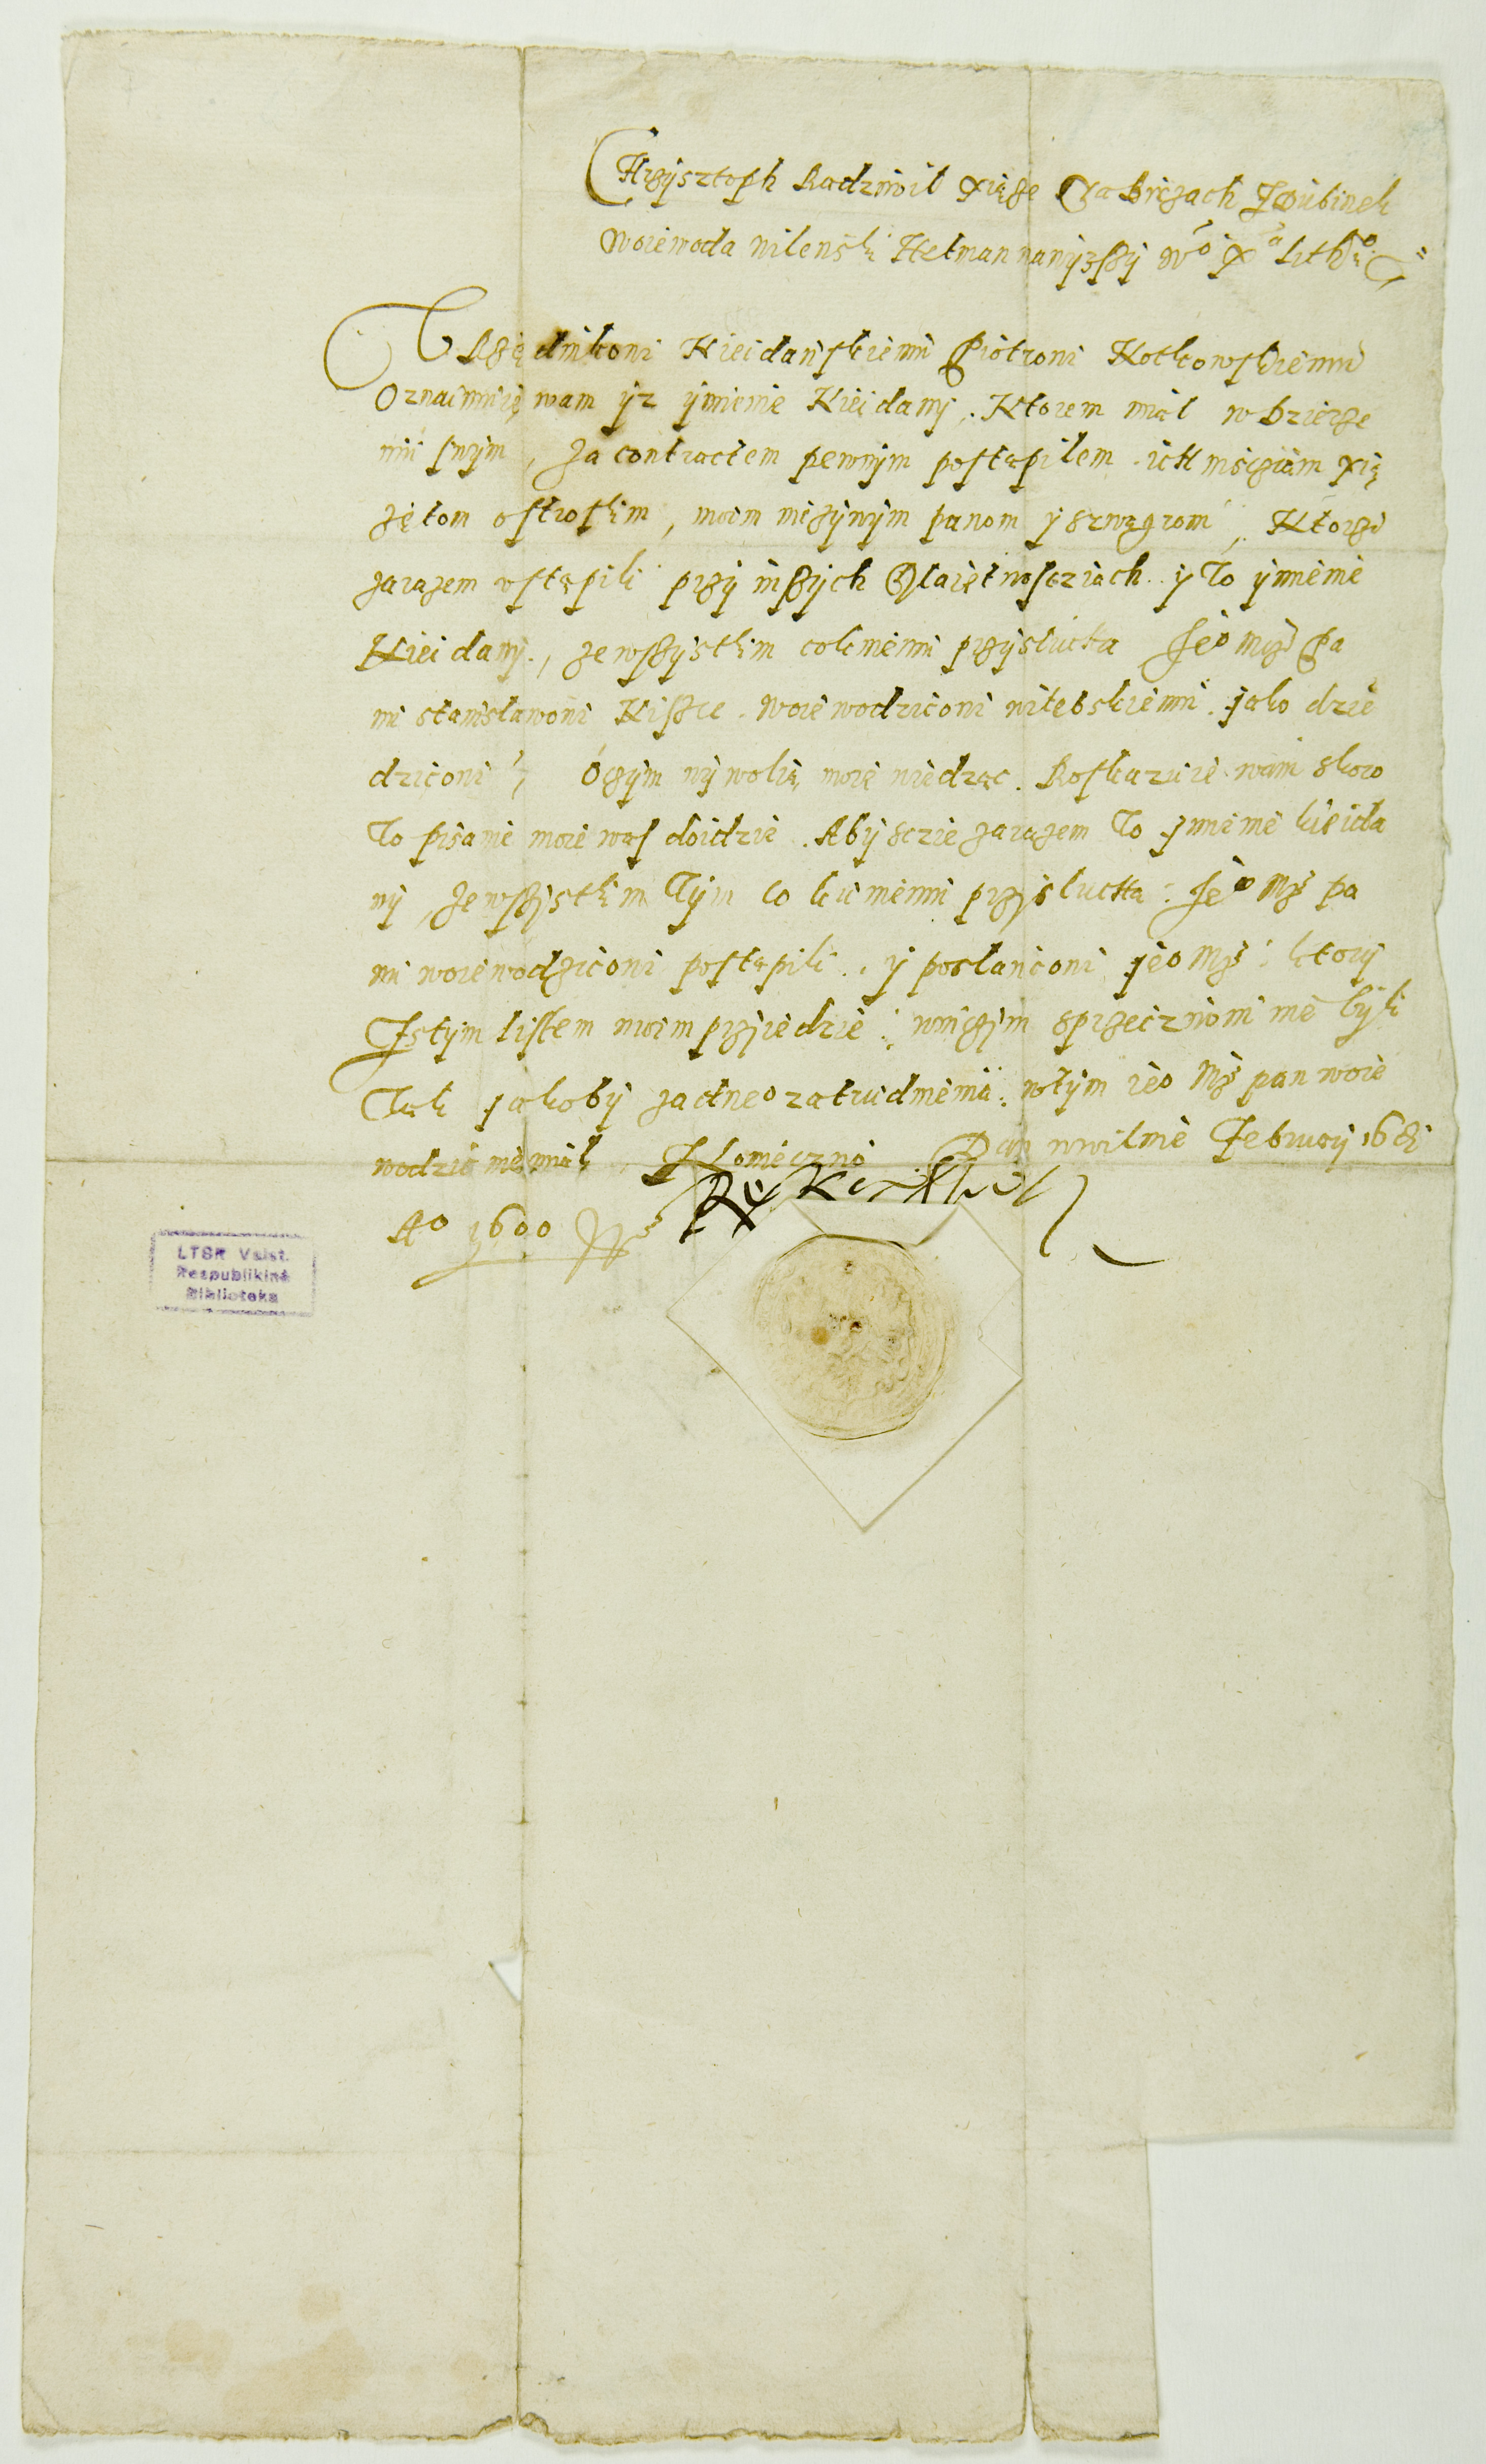 Chrzysztoph Radziwil xiąże Na Birżach J Dubinek
Woiewoda wilenski Hetman nanyższy Wo Xa Lith
Urzędnikowi Kieidanskiemu Piotrowi Kotkowskiemu
Oznaimuię wam yz ymienie Kieidany, Ktorem miał w dzierże
niu swym, za contractem pewnym postąpilem ich mścziam xią
żętom ostroskim, moim miczywym panom y szwagrom, Ktorzi
zarazem ustąpili przy inszych Maiętnosciach y To ymienie
Kieidany, ze wszystkim co k niemu przyslucha Jeo Mczi Pa
nu stanislawowi Kiszce woiewodzicowi witebskiemu jako dzie
dzicowi, Oczym wy wolią moię wiedząc Roskazuię wam skoro
To pisanie moie was doidzie Aby scie zarazem To ymienie kieida
ny, ze wszystkim Tym co k niemu przyslucha Jeo Mczi pa
nu woiewodzicowi postąpili, y poslancowi jeo Mczi ktory
Zstym listem moim przyiedzie wniczym sprzecznemi nie byli
Tak jakoby zadneo zatrudnienia wtym ieo Mcz pan woie
wodzic nie miał, Koniecznie Dan wwilnie February 16 dni
Ao 1600
LTSR Valst.
Respublikinė
Biblioteka